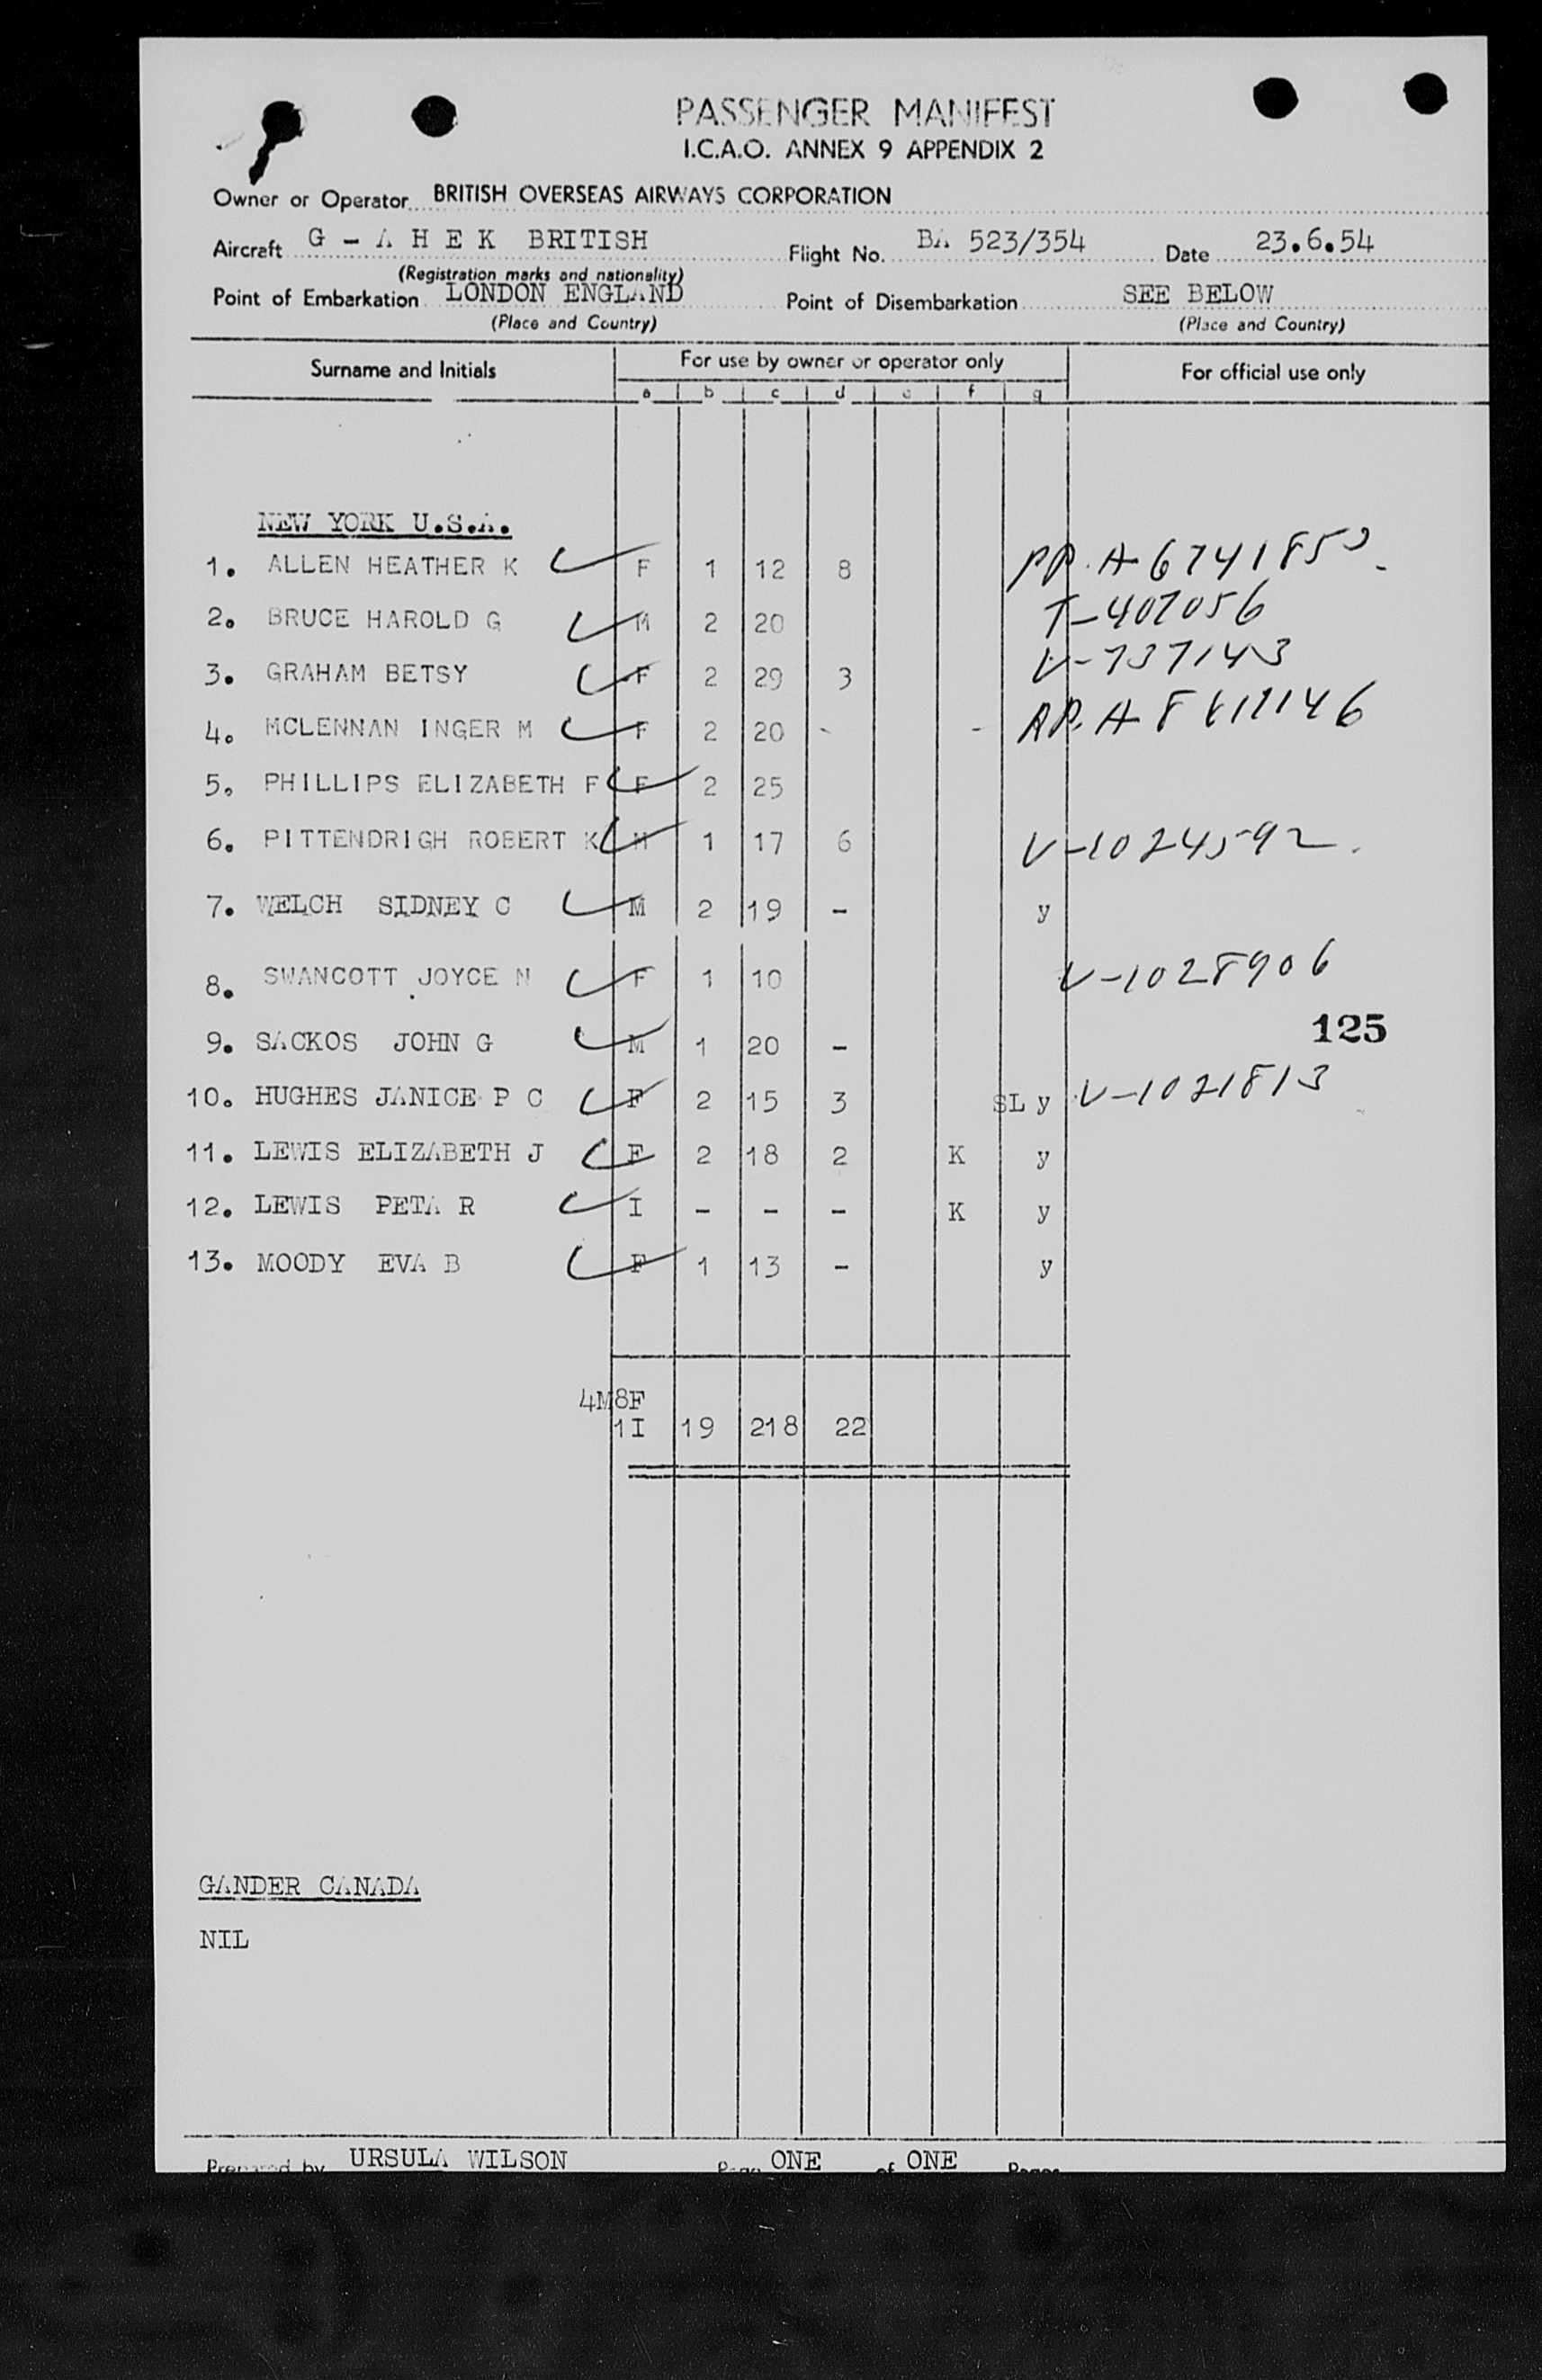 PASSENGER MANIFEST
I.C.A.O. ANNEX 9 APPENDIX 2
Owner or Operator BRITISH OVERSEAS AIRWAYS CORPORATION
Aircraft G - A H E K BRITISH Flight No. BA 523/354 Date 23.6.54
(Registration marks and nationality)
Point of Embarkation LONDON ENGLAND Point of Disembarkation SEE BELOW
(Place and Country) (Place and Country)
Surname and Initials For use by owner or operator only For official use only
a b c d e f g
NEW YORK U.S.A.
1. ALLEN HEATHER K F 1 12 8 PP. A
2. BRUCE HAROLD G M 2 20 T-407056
3. GRAHAM BETSY F 2 29 3 V-737143
4. MCLENNAN INGER M F 2 20 - - PP. A
5. PHILLIPS ELIZABETH F F 2 25
6. PITTENDRIGH ROBERT K M 1 17 6 V-1024592.
7. WELCH SIDNEY C M 2 19 - y
8. SWANCOTT JOYCE N F 1 10 V-1028906
125
9. SACKOS JOHN G M 1 20 -
10. HUGHES JANICE P C F 2 15 3 SL y V-1021813
11. LEWIS ELIZABETH J F 2 18 2 K y
12. LEWIS PETA R I - - - K y
13. MOODY EVA B F 1 13 - y
4M8F
1I 19 218 22
GANDER CANADA
NIL
Prepared by URSULA WILSON Page ONE of ONE Pages